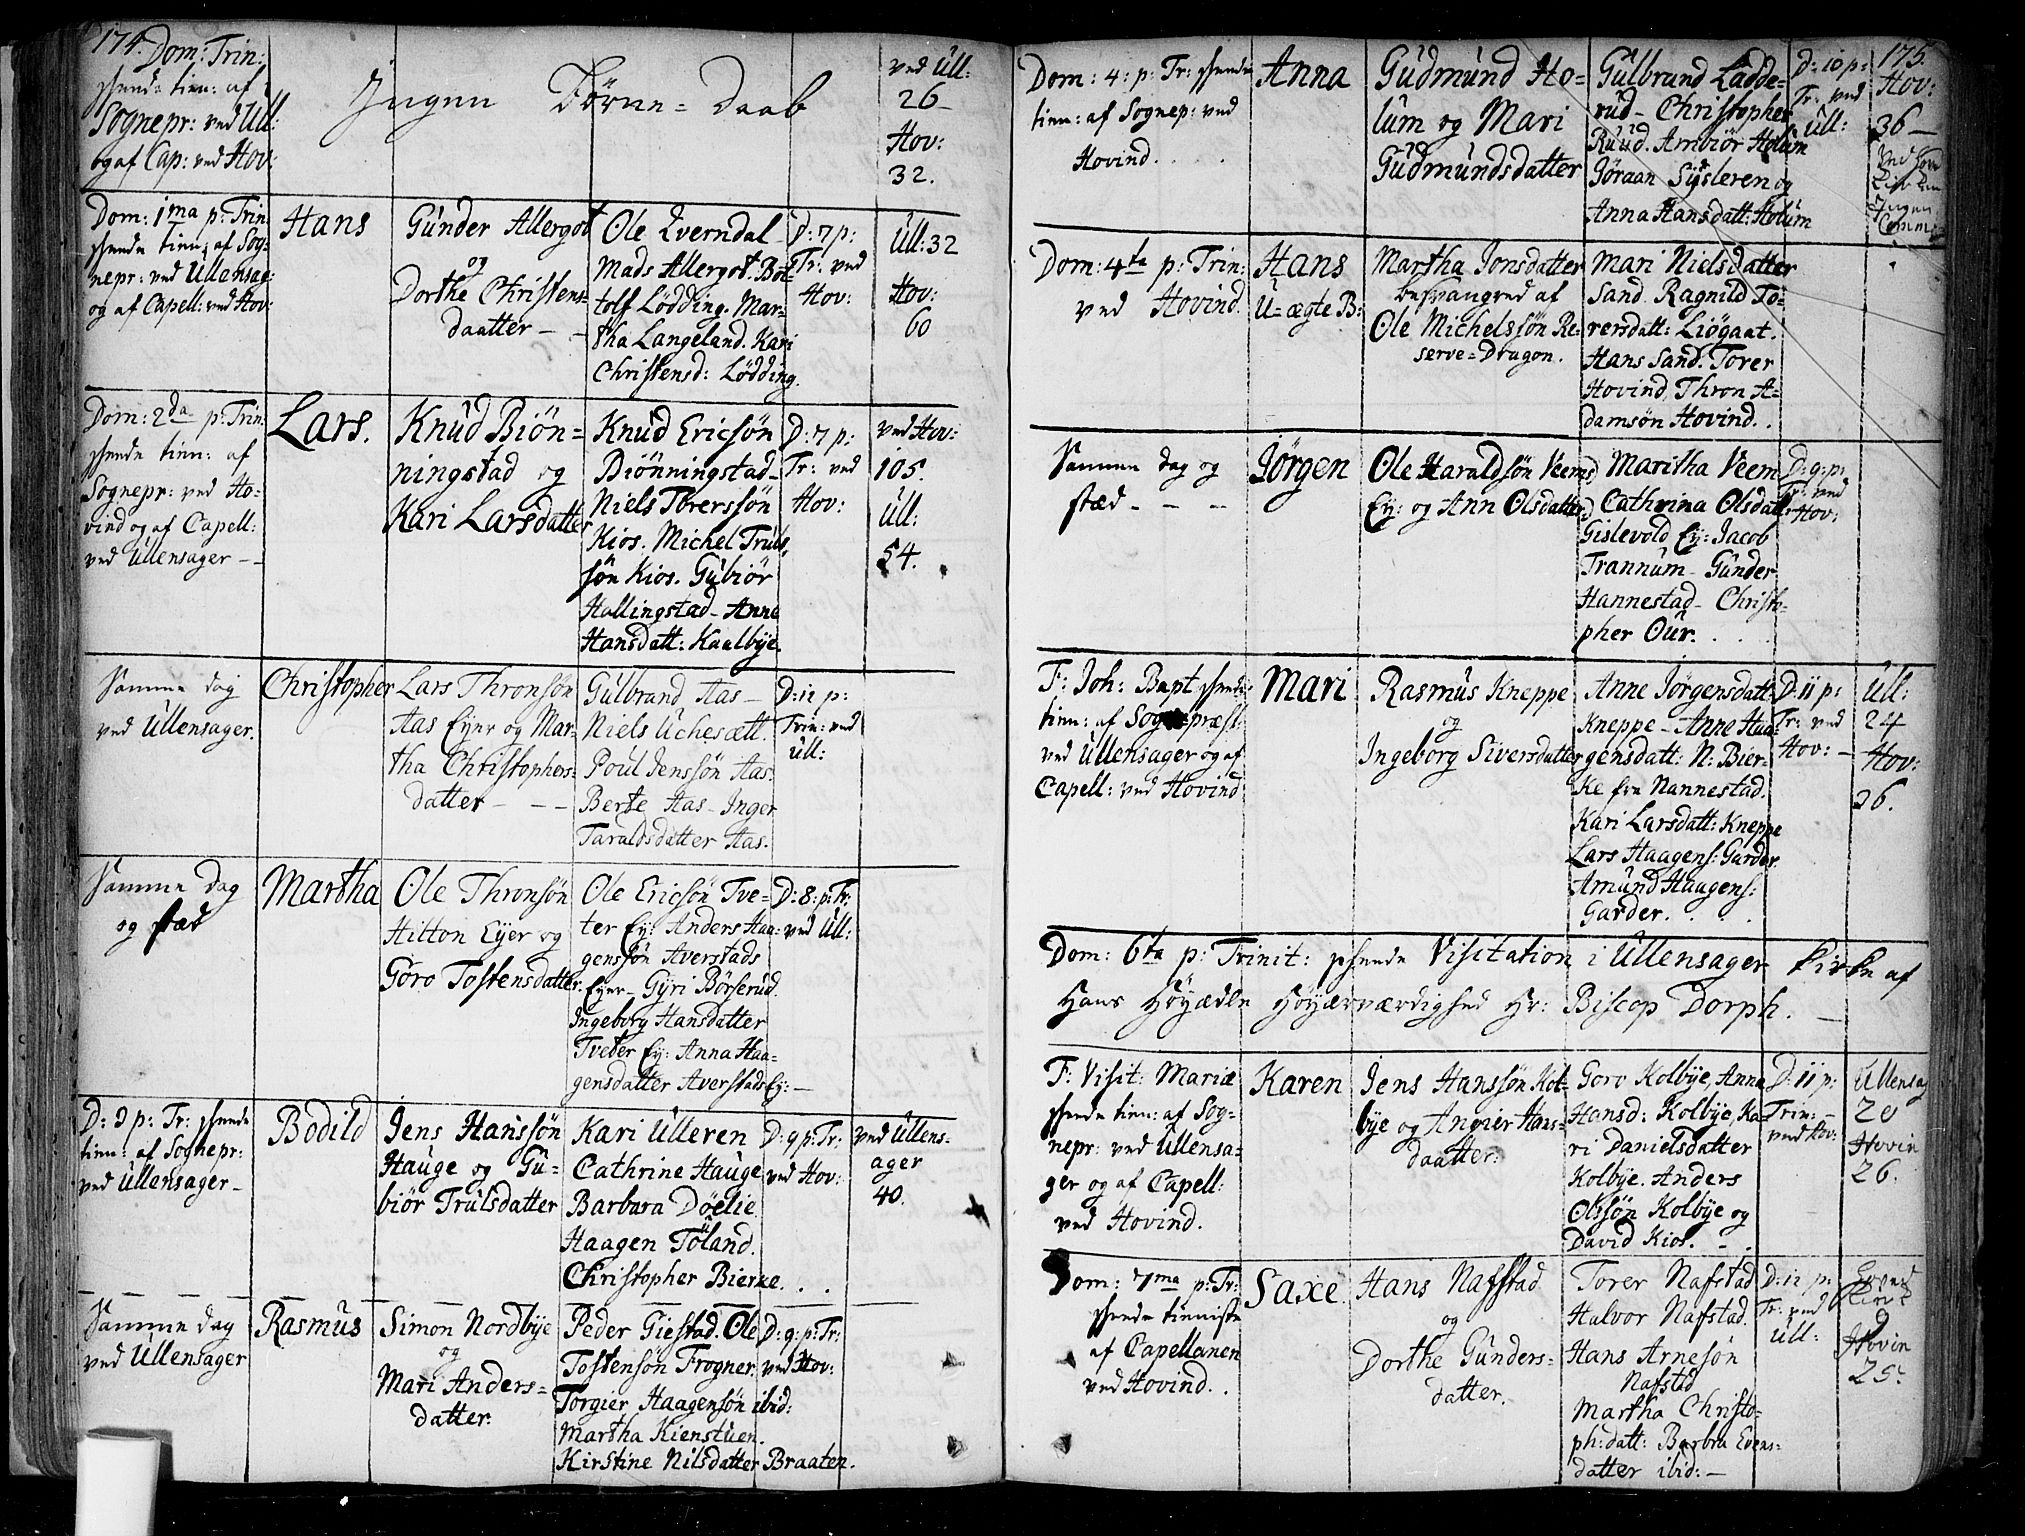 174.
Dom: Trin:
skeede tien: af
Sognepr: ved Ull:
og af Cap: ved Hov:
Ingen Börne=Daab
ved Ull:
26
Hov:
32.
Dom: 1ma p: Trin:
skeede tien: af Sog-
nepr: ved Ullensag:
og af Capell: ved Hov:
Hans
Gunder Allergot
og
Dorthe Christens-
daatter - -
Ole Lverndal
Mads Allergot. Bot-
tolf Lödding. Mar-
tha Langeland. Kari
Christensd: Lödding.
D: 7 p:
Tr: ved
Hov:
Ull: 32
Hov:
60
Dom: 2da p: Trin:
skeede tien: af
Sognepr: ved Ho-
vind og af Capell:
ved Ullensager - -
Lars.
Knud Biön-
ningstad og
Kari Larsdatter
Knud Ericsön
Biönningstad
Niels Torerssön
Kios. Michel Truls-
sön Kios. Gubiör
Hallingstad - Anne
Hansdatt: Kaalbÿe.
D: 7 p:
Tr: ved
Hov:
ved Hov:
105.
Ull:
54.
Samme dag
ved Ullensager.
Christopher
Lars Thronsön
Aas Eyer og Mar-
tha Christophers-
datter - - -
Gulbrand Aas -
Niels Uchesætt.
Poul Jenssön Aas.
Berte Aas - Inger
Taraldsdatter Aas.
D: 12 p:
Trin: ved
Ull:
Samme Dag
og stæd
Martha
Ole Thronsön
Hilton Eyer og
Goro Tostensdatter.
Ole Ericsön Tve-
ter Ey: Anders Haa-
genssön Averstads
Eyer - Gÿri Börserud.
Ingeborg Hansdatter
Tveter Ey: Anna Haa-
gensdatter Averstads Ey: -
D: 8: p: Tr:
ved Ull:
D: 3 p: Tr: skeede
tien: af Sognepr:
ved Ullensager -
Bodild
Jens Hanssön
Hauge og Gu-
biör Trulsdatter
Kari Ulleren
Cathrine Hauge
Barbara Döelie
Haagen Töland.
Christopher Bierke. . .
D: 9 p: Tr:
ved Hov:
ved Ullens-
ager
40.
Samme Dag
ved Ullensager
Rasmus
Simon Nordbÿe
og
Mari Anders-
datter.
Peder Giestad. Ole
Tostensön Frogner.
Torgier Haagensön ibid:
Martha Kienstuen.
Kirstine Nilsdatter Braaten.
D: 9: p: Tr:
ved Hov:
175.
Dom: 4: p: Tr: skeede
tien: af Sognep: ved
Hovind. . . .
Anna
Gudmund Ho-
lum og Mari
Gudmundsdatter
Gulbrand Ladde-
rud - Christopher
Ruud. Ambiör Holum
Jöraan Sÿsleren og
Anna Hansdatt: Holum
D: 10 p:
Tr: ved
Ull:
Hov:
36 -
Ingen
Comm:
Dom: 4ta p: Trin:
ved Hovind.
Hans
U-ægte B:
Martha Jonsdatter
besvangred af
Ole Michelssön Re-
serve-Dragon.
Mari Nielsdatter
Sand. Ragnild To-
rersdatt: Liögaat.
Hans Sand. Torer
Hovind. Thron A-
damsön Hovind. .
Samme dag og
stæd - - -
Jörgen
Ole Haraldsön Veem
Ey: og Ann Olsdatter
Maritha Veem
Cathrina Olsdatt:
Gislevold Ey: Jacob
Trannum - Gunder
Hannestad - Christo-
pher Our. . . .
D: 9: p:
Tr: ved
Hov:
F: Joh: Bapt skeede
tien: af Sognepræst
ved Ullensager og af
Capell: ved Hovind
Mari
Rasmus Kneppe
og
Ingeborg Siversdatter
Anne Jörgensdatt:
Kneppe - Anne Haa-
gensdatt: N: Bier-
ke fra Nannestad.
Kari Larsdatt: Kneppe
Lars Haagens: Garder.
Amund Haagens:
Garder. . . .
D: 11 p:
Tr: ved
Hov: -
Ull:
24
Hov:
36.
Dom: 6ta p: Trinit: skeede Visitation i Ullensager Kirke af
Hans Höÿædle Höÿærværdighed Hr: Biscop Dorph. -
F: Visit: Mariæ
skeede tien: af Sog-
nepr: ved Ullensa-
ger og af Capell:
ved Hovind.
Karen
Jens Hanssön Kol-
bÿe og Angier Hans-
daatter.
Goro Kolbÿe, Anna
Hansd: Kolbÿe, Ka-
ri Danielsdatter
Kolbÿe. Anders
Olssön Kolbÿe og
David Kios. - .
D: 11 p:
Trin: -
ved Hov:
Ullensag
20
Hovin
26.
Dom: 7ma p: Tr:
skeede tienniste
af Capellanen
ved Hovind. .
Saxe
Hans Nafstad
og
Dorthe Gunders-
datter.
Torer Nafstad
Halvor Nafstad.
Hans Arnesön
Nafstad
Martha Christo-
ph: datt: Barbra Evens-
datter ibid: -
D: 12 p:
Tr: ved
Ull:
9
Hovin
25.